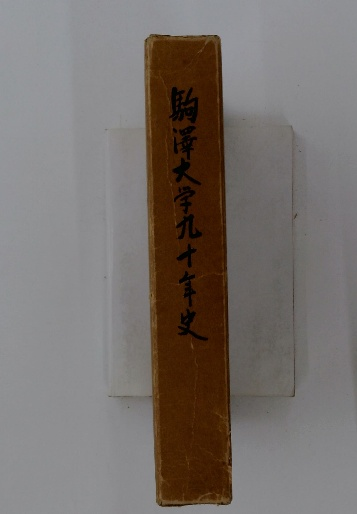 駒澤大学九十年史